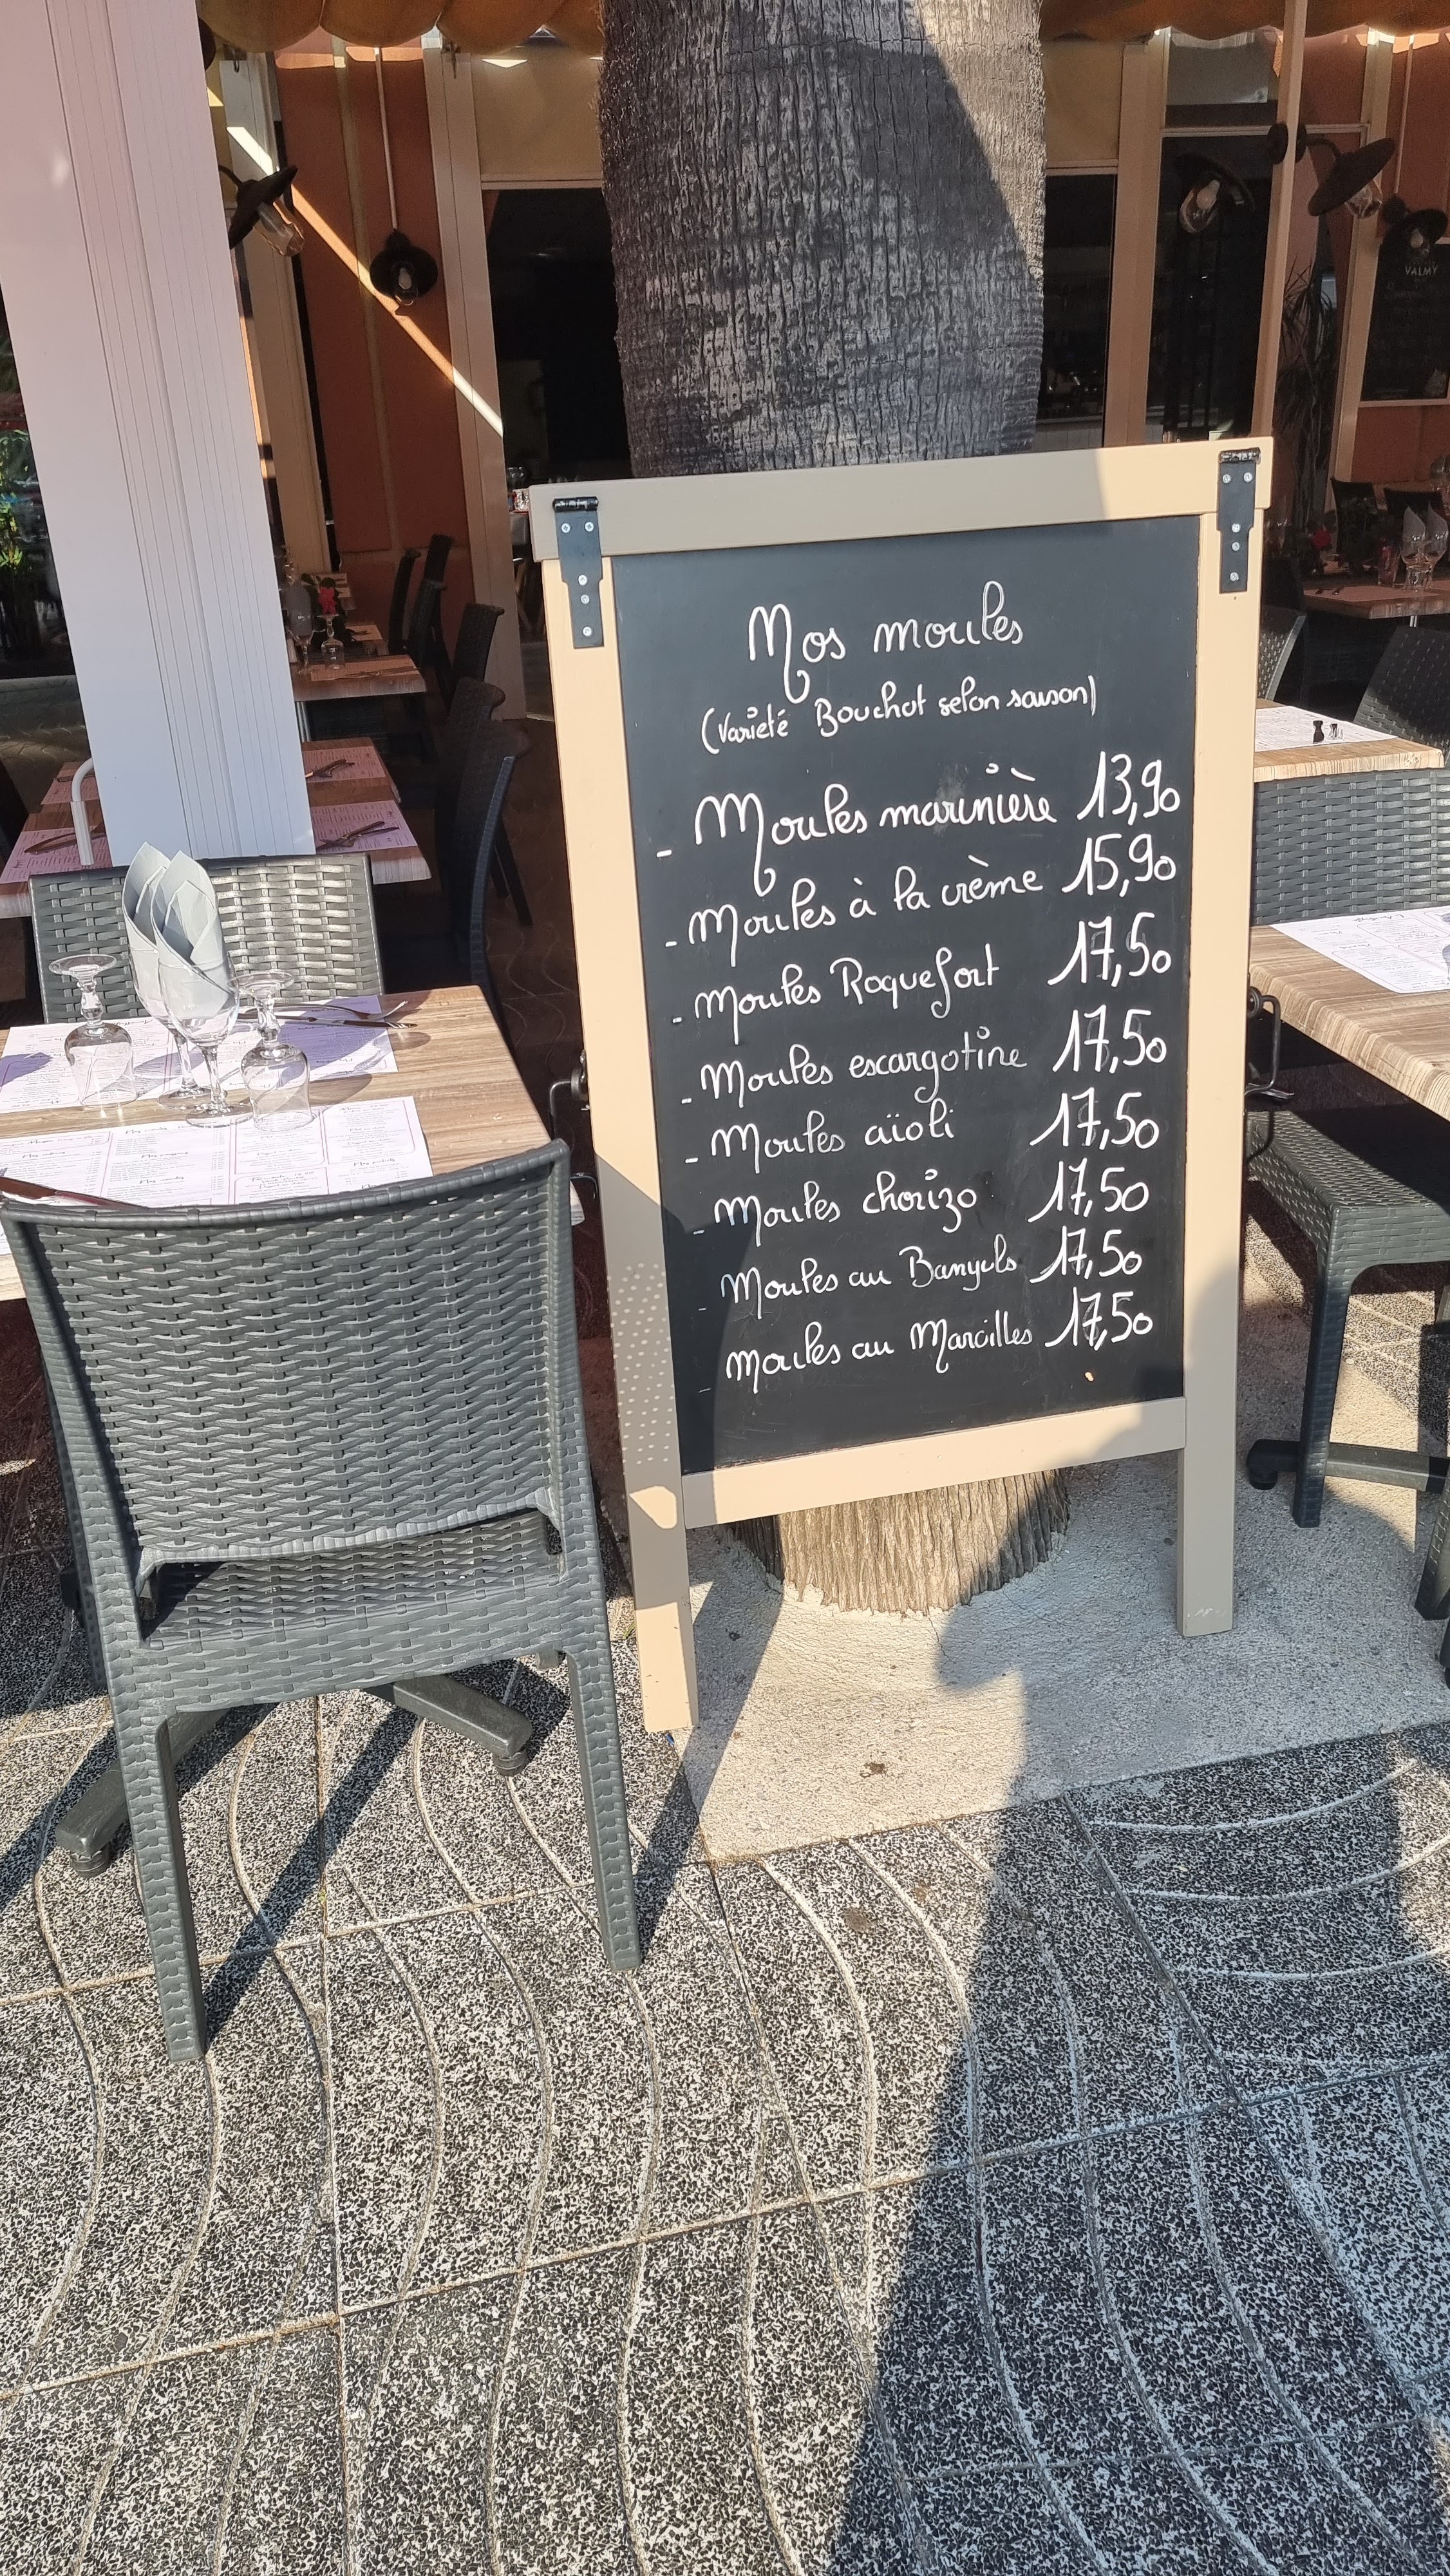 VALMY
Nos moules
(variété Bouchot selon saison)
- Moules marinière 13,90
- Moules à la crème 15,90
- Moules Roquefort 17,50
- Moules escargotine 17,50
- Moules aïoli 17,50
- Moules chorizo 17,50
- Moules au Banyuls 17,50
- Moules au Marcilles 17,50